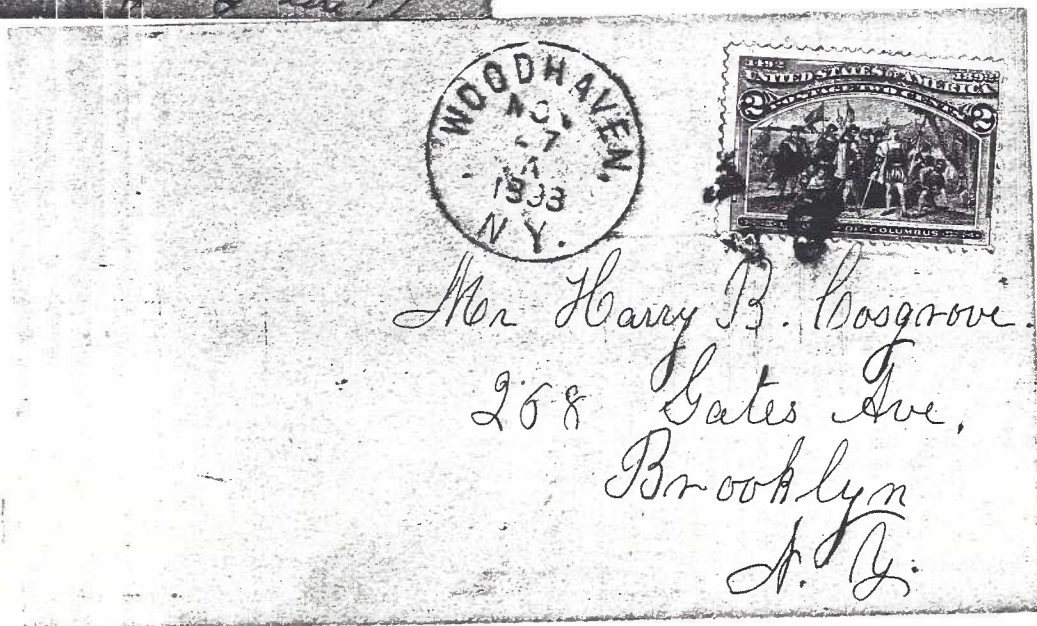 WOODHAVEN,
NOV
27
A
1933
N.Y.
1492 1892
UNITED STATES OF AMERICA
POSTAGE TWO CENTS
2 2
OF COLUMBUS
Mr Harry B. Cosgrove.
268 Gates Ave,
Brooklyn
N. Y.